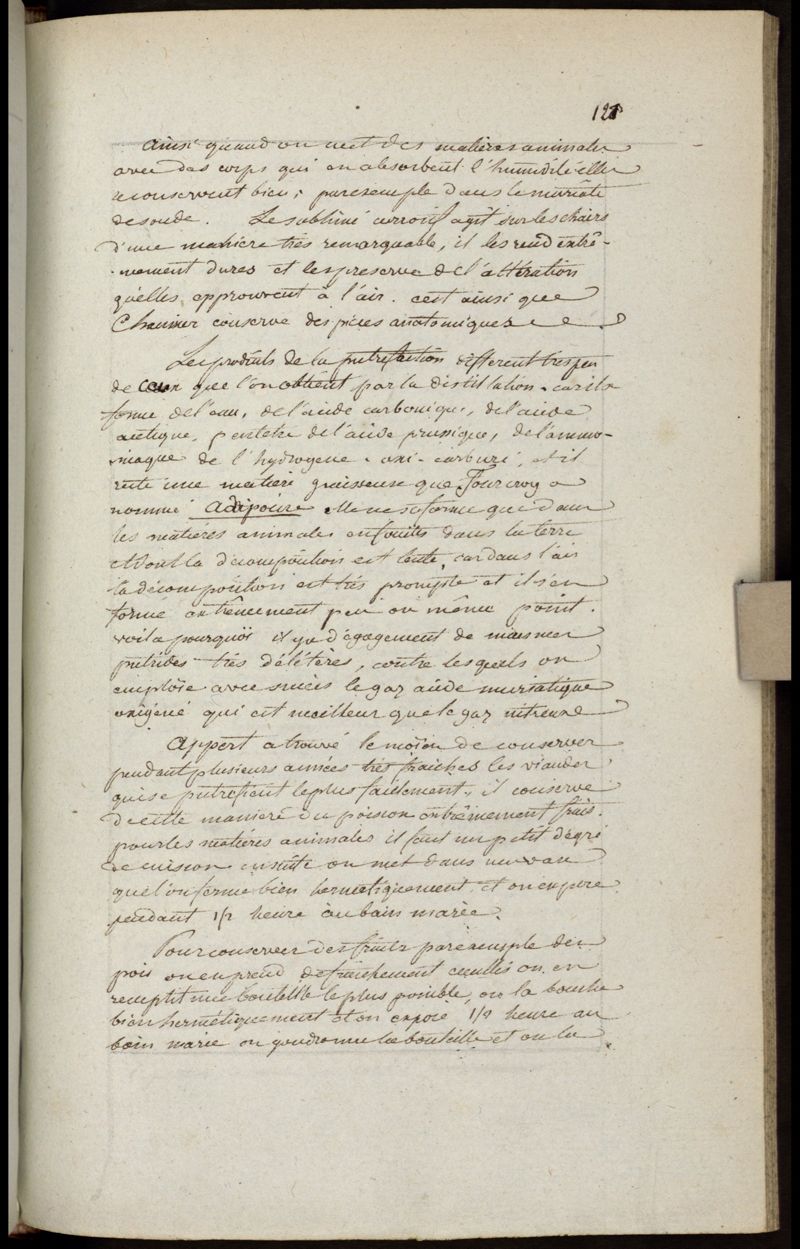 128
Ainsi quand on met des matières animales
avec des corps qui en absorbent l'humidité elles
se conservent bien; par exemple dans le muriate
de soude. Le sublimé corrosif agit sur les chairs
d'une manière très remarquable, il les rend extrê-
-mement dures et les préserve de l'altération
qu'elles epprouvent à l'air. c'est ainsi que
Chaussier conserve des pièces anatomiques
Les produits de la putrefaction diffèrent très peu
de ceux que l'on obtient par la distillation. car il se
forme de l'eau, de l'acide carbonique, de l'acide
acétique, peut etre de l'acide prussique, de l'ammo-
-niaque de l'hydrogene - oxi - carburé, et il
reste une matière graisseuse que Fourcroy a
nommé Adipocire elle ne se forme que dans
les matières animales enfouits dans la terre
et dont la décomposition est lente, car dans l'air
la décomposition est très prompte et il s'en
forme extrêmement peu ou même point.
voila pourquoi il y a dégagement de miasmes
putrides très délétères, contre lesquels on
emploie avec succès le gaz acide muriatique
oxigéné qui est meilleur que le gaz nitreux
Appert a trouvé le moïen de conserver
pendant plusieurs années très fraiches les viandes
qui se putrefient le plus facilement, il conserve
de cette maniere du poisson extrêmement frais.
pour les matières animales il faut un petit dégré
de cuisson ensuite on met dans un vase
que l'on ferme bien hermetiquement et on expose
pendant 1/2 heure au bain marie.
Pour conserver des fruits par exemple des
pois on en prend de fraichement cueillis on en
remplit une bouteille le plus possible, on la bouche
bien hermétiquement et on expose 1/2 heure au
bain marie on goudronne la bouteille et on la